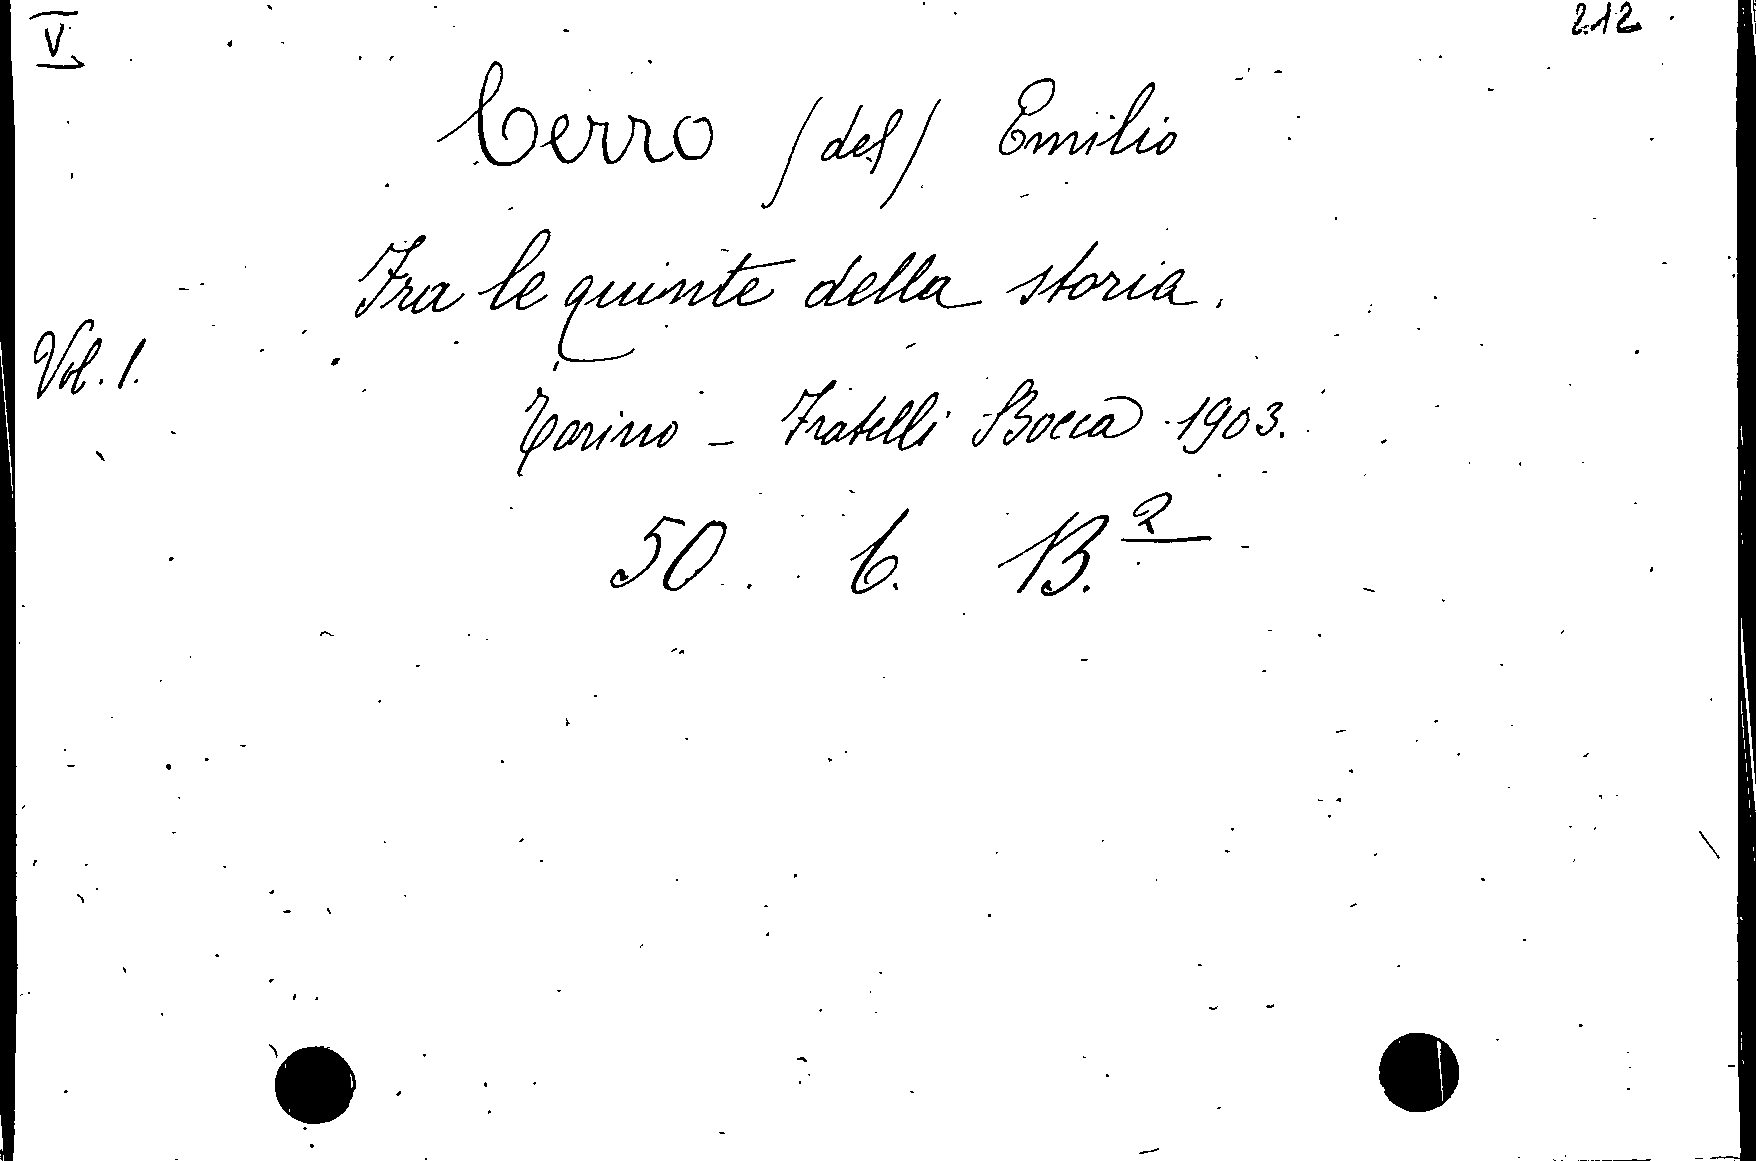 V
212
Cerro /del/ Emilio
Fra le quinte della storia.
Vol. 1.
Torino - Fratelli Bocca 1903.
50. 6. B.2